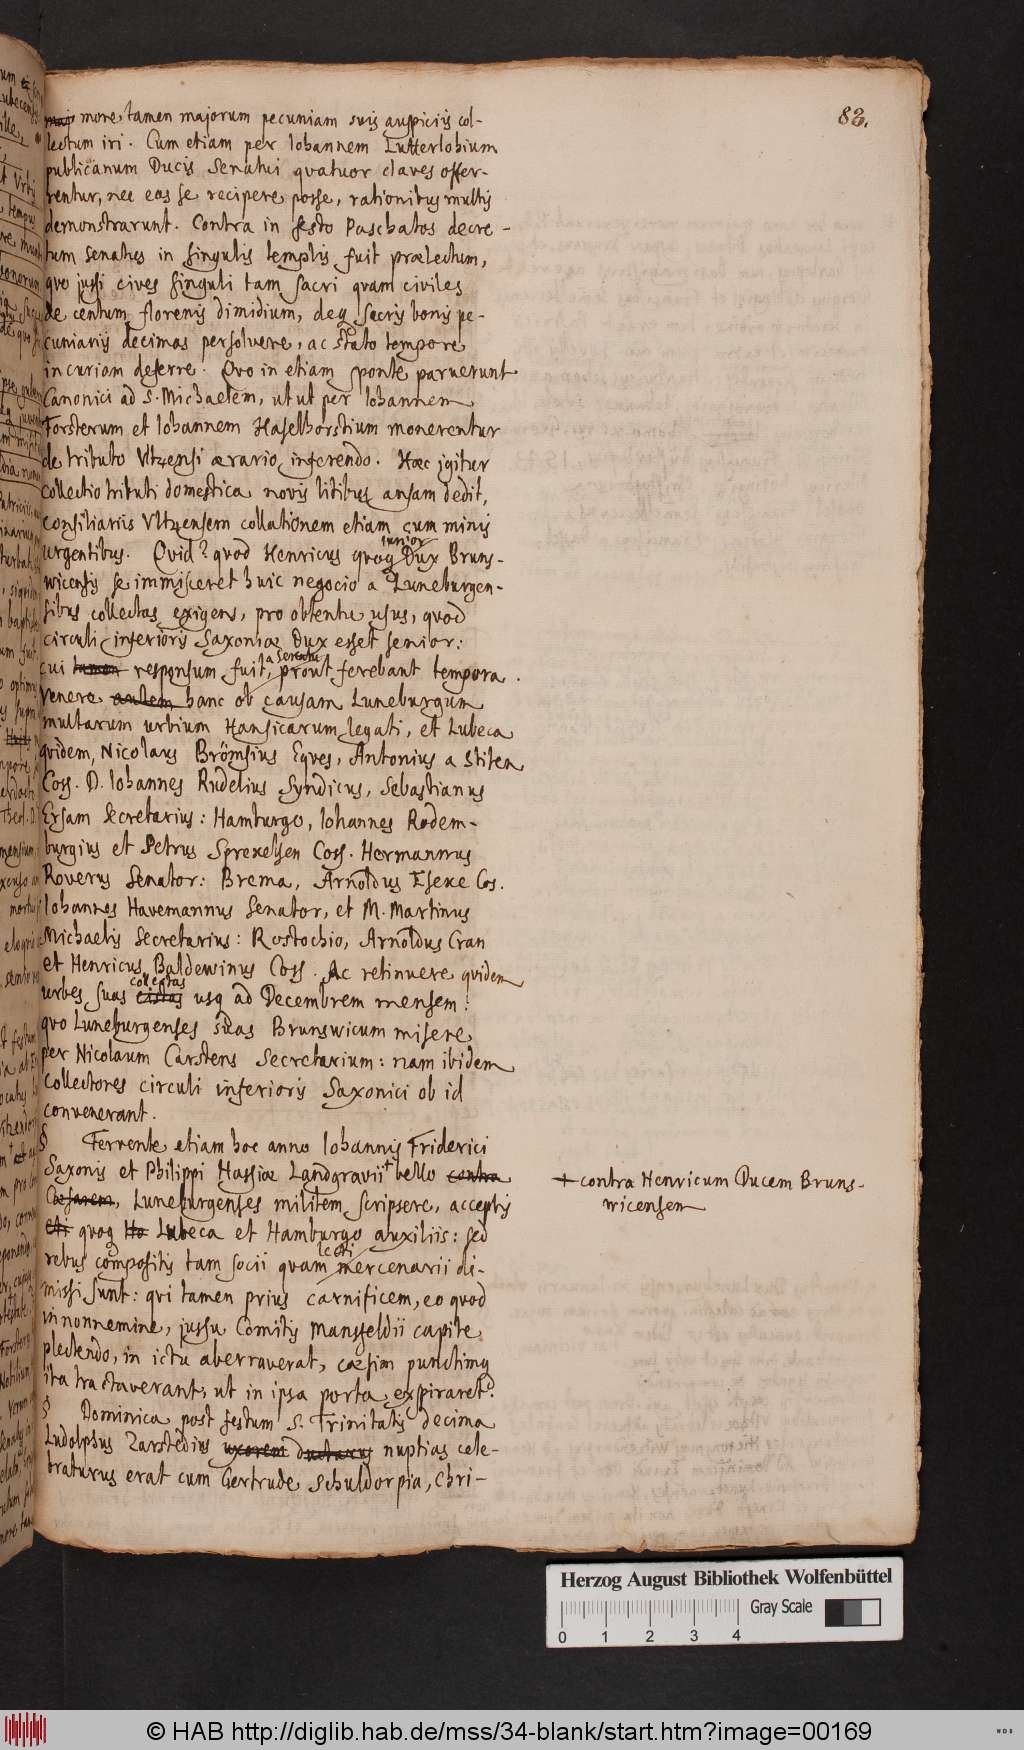 83.
maj more tamen majorum pecuniam suis auspiciis col-
lectum iri. Cum etiam per Iohannem Lutterlohium
publicanum Ducis Senatui quatuor claves offer-
rentur, nec eas se recipere posse, rationibus multis
demonstrarunt. Contra in festo Paschatos decre-
tum senatus in singulis templis fuit prælectum,
quo jussi cives singuli tam sacri quam civiles
de centum florenis dimidium, deq sacris bonis pe-
cuniariis decimas persolvere, ac stato tempore
in curiam deferre. Quo in etiam sponte paruerunt
Canonici ad S. Michaelem, ut ut per Iohannem
Forsterum et Iohannem Haselhorstium monerentur
de tributo Ultzensi ærario inferendo. Hæc igitur
collectio tributi domestica novis litibus ansam dedit,
consiliariis Ultzensem collationem etiam cum minis
urgentibus. Quid? quod Henricus quoq junior Dux Bruns-
wicensis se immisceret huic negocio a Luneburgen-
sibus collectas exigens, pro obtentu usus, quod
circuli inferioris Saxoniæ Dux esset senior:
cui tamen responsum fuit, a Senatu prout ferebant tempora.
Venere autem hanc ob causam Luneburgum
multarum urbium Hansicarum legati, et Lubeca
quidem, Nicolaus Brömsius Eques, Antonius a Stiten
Coss. D. Iohannes Rudelius Syndicus, Sebastianus
Ersam Secretarius: Hamburgo, Iohannes Rodem-
burgius et Petrus Sprekelsen Coss. Hermannus
Roverus Senator: Brema, Arnoldus Eseke Cos.
Iohannes Havemannus Senator, et M. Martinus
Michaelis Secretarius: Rostochio, Arnoldus Cran
et Henricus Baldewinus Coss. Ac retinuere quidem
urbes suas cistas collectas usq ad Decembrem mensem:
quo Luneburgenses suas Brunswicum misere
per Nicolaum Carstens Secretarium: nam ibidem
Collectores circuli inferioris Saxonici ob id
convenerant.
§ Fervente etiam hoc anno Iohannis Friderici
Saxonis et Philippi Hassiæ Landgravii + bello contra
Cæsarem, Luneburgenses militem scripsere, acceptis
quoq Lubeca et Hamburgo auxiliis: sed
rebus compositis tam socii quam lecti mercenarii di-
missi sunt: qui tamen prius carnificem, eo quod
in nonnemine, jussu Comitis Mansfeldii capite
plectendo, in ictu aberraverat, cæsim punctimq
ita tractaverant, ut in ipsa porta expiraret.
§ Dominica post festum S. Trinitatis decima
Ludolphus Zarstedius uxorem ducturus nuptias cele-
braturus erat cum Gertrude Schuldorpia, Chri-
+ contra Henricum Ducem Bruns-
wicensem
Herzog August Bibliothek Wolfenbüttel
Gray Scale
0 1 2 3 4
© HAB http://diglib.hab.de/mss/34-blank/start.htm?image=00169